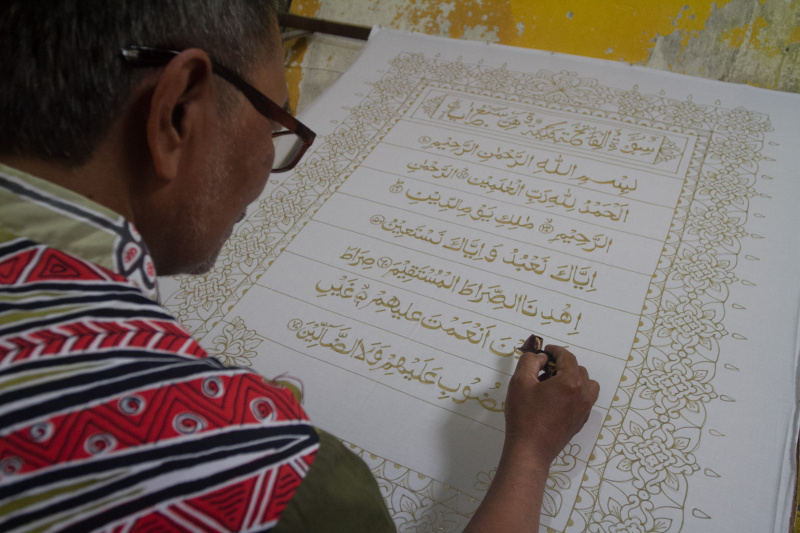 سُوْرَةُ الْفَاتِحَةِ مَكِّيَّةٌ وَهِيَ سَبْعُ اٰيَاتٍ
بِسْمِ اللّٰهِ الرَّحْمٰنِ الرَّحِيْمِ ١
اَلْحَمْدُ لِلّٰهِ رَبِّ الْعٰلَمِيْنَ ٢ الرَّحْمٰنِ
الرَّحِيْمِ ٣ مٰلِكِ يَوْمِ الدِّيْنِ ٤
اِيَّاكَ نَعْبُدُ وَاِيَّاكَ نَسْتَعِيْنُ ٥
اِهْدِنَا الصِّرَاطَ الْمُسْتَقِيْمَ ٦ صِرَاطَ
اَنْعَمْتَ عَلَيْهِمْ غَيْرِ
عَلَيْهِمْ وَلَا الضَّاۤلِّيْنَ ٧